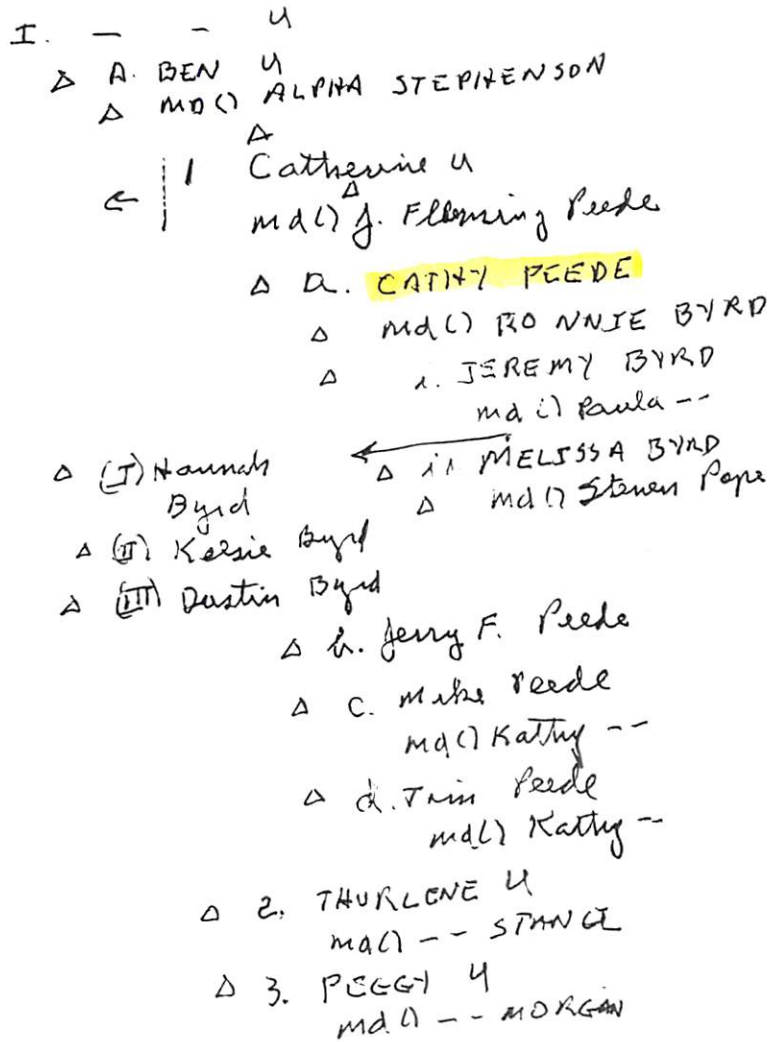 I. — — U
Δ A. BEN U
Δ MD() ALPHA STEPHENSON
Δ
← | 1 Catherine U
Δ
md() J. Flleming Peede
Δ a. CATHY PEEDE
Δ md() RONNIE BYRD
Δ i. JEREMY BYRD
md () Paula --
Δ (I) Hannah Δ ii MELISSA BYRD
Byrd Δ md () Steven Pope
Δ (II) Kelsie Byrd
Δ (III) Dustin Byrd
Δ b. Jerry F. Peede
Δ c. Mike Peede
md () Kathy --
Δ d. Tim Peede
md () Kathy --
Δ 2. THURLENE U
md () -- STANCE
Δ 3. PEGGY U
md () -- MORGAN